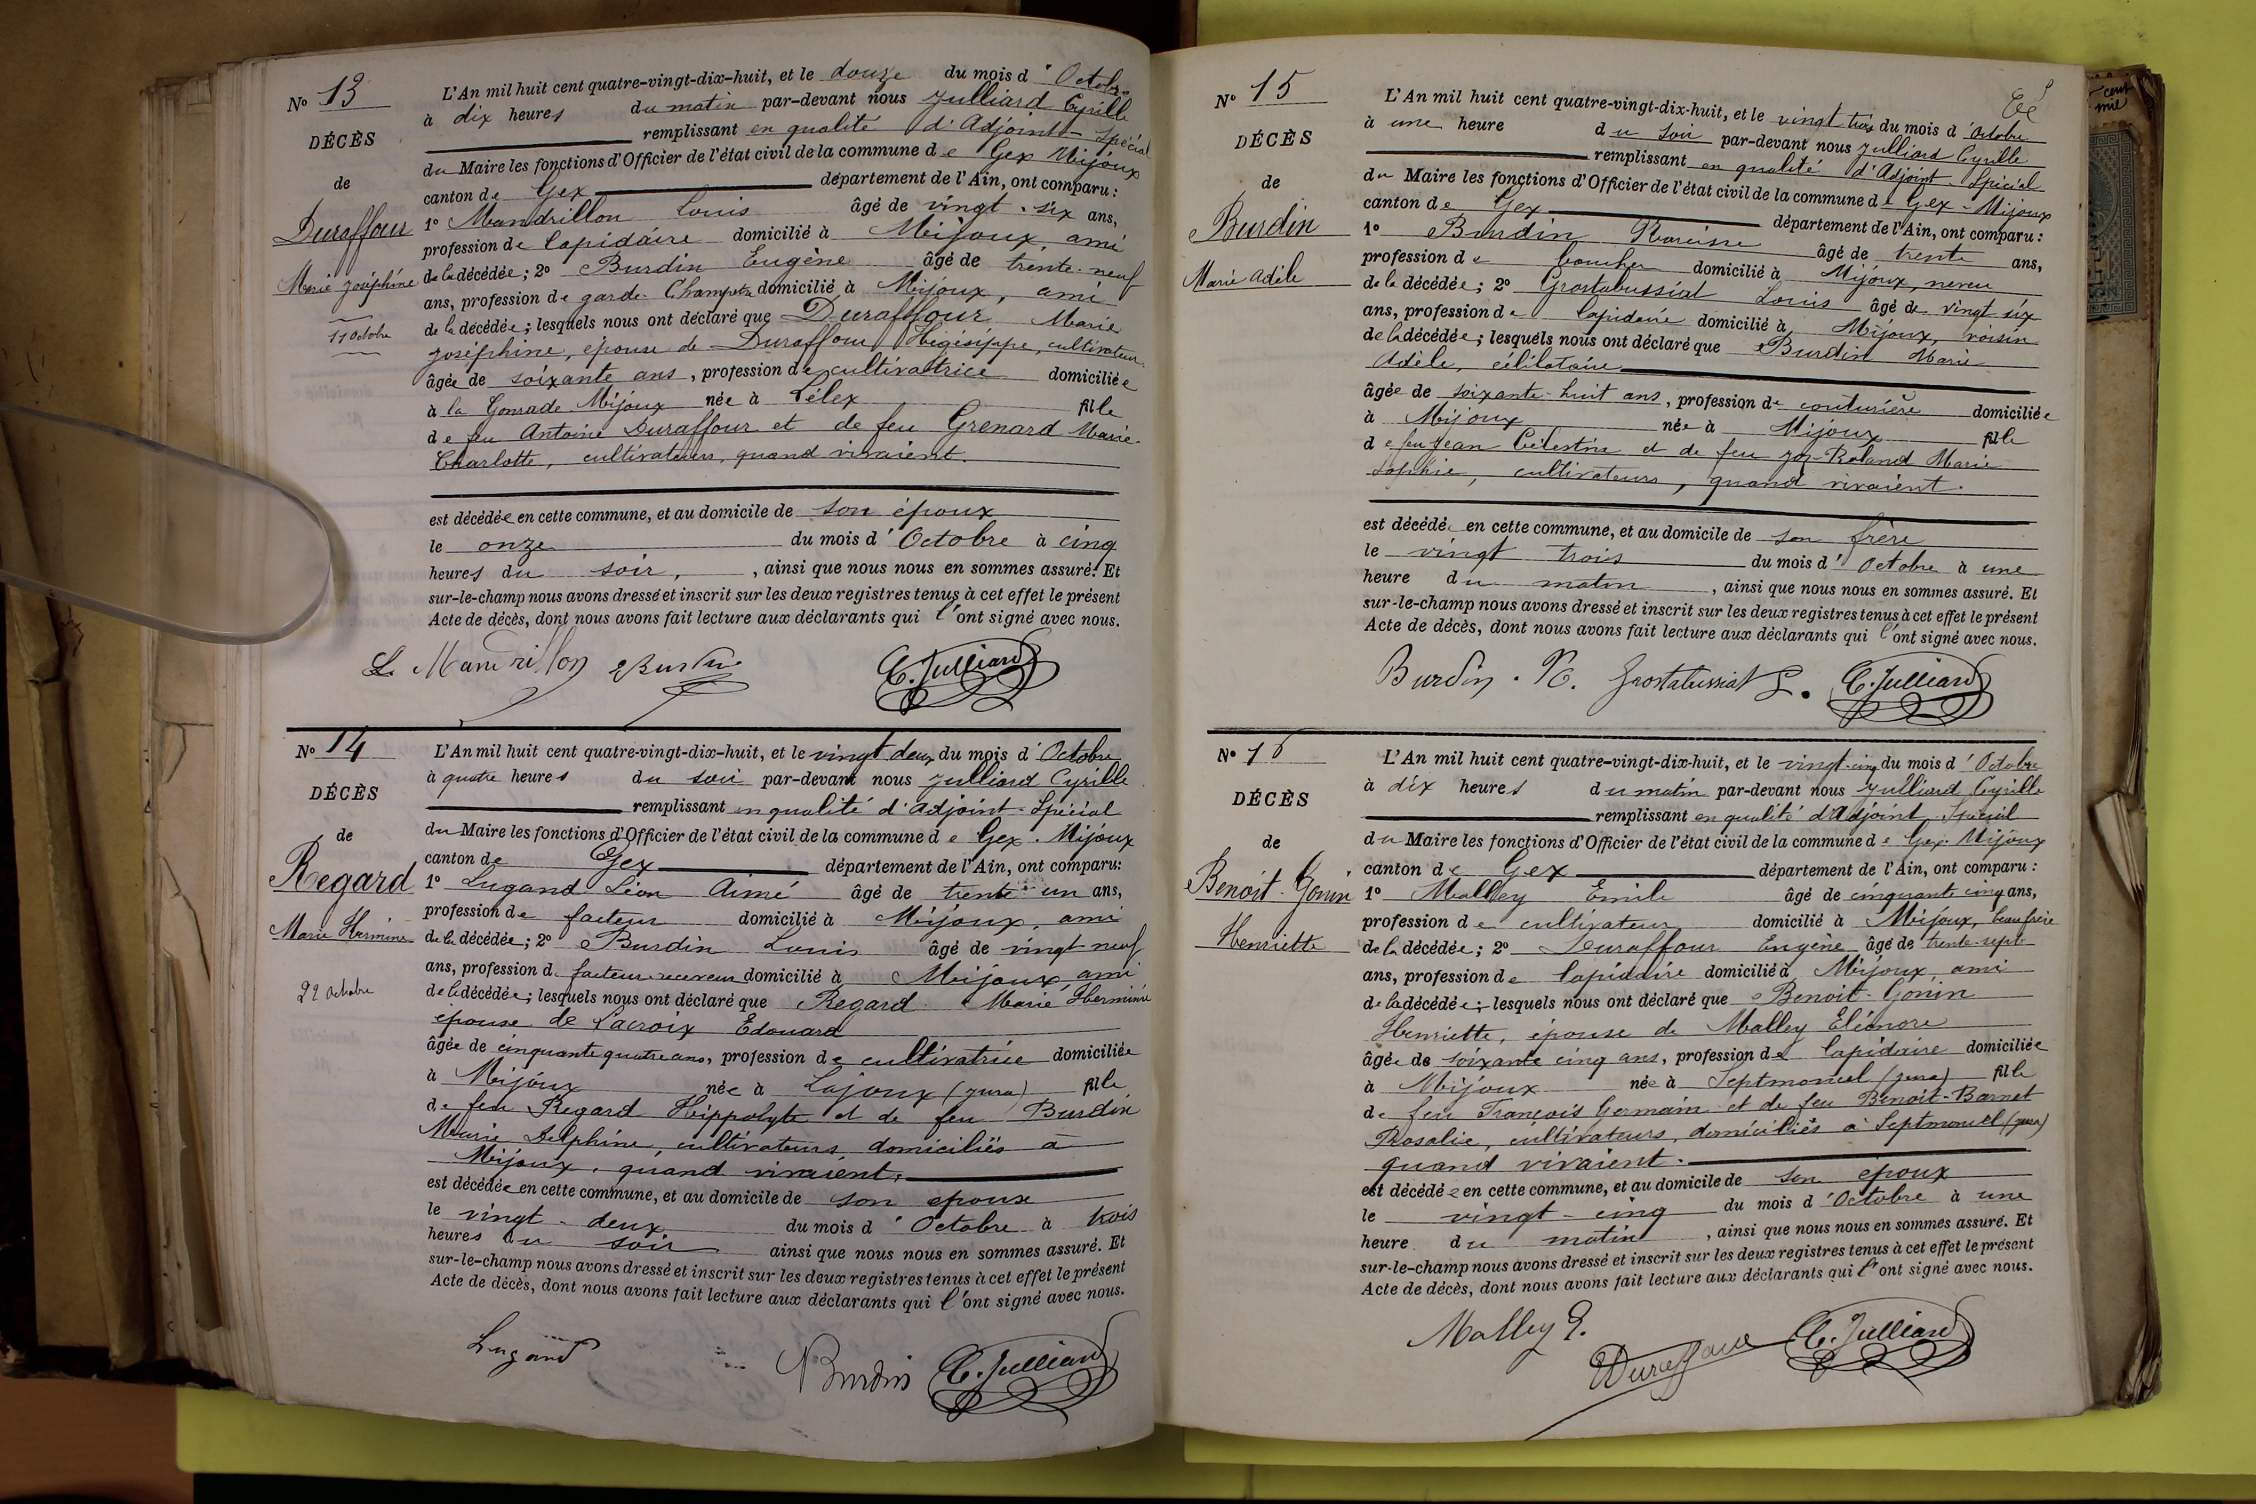 N° 13
DÉCÈS
de
Duraffour
Marie Joséphine
11 Octobre
L'An mil huit cent quatre-vingt-dix-huit, et le douze du mois d'Octobre
à dix heures du matin par-devant nous Julliard Cyrille
remplissant en qualité d'Adjoint-Spécial
du Maire les fonctions d'Officier de l'état civil de la commune de Gex Mijoux
canton de Gex département de l'Ain, ont comparu :
1° Mandrillon Louis âgé de vingt-six ans,
profession de lapidaire domicilié à Mijoux, ami
de la décédée ; 2° Burdin Eugène âgé de trente-neuf
ans, profession de garde-Champêtre domicilié à Mijoux, ami
de la décédée ; lesquels nous ont déclaré que Duraffour Marie
Joséphine, épouse de Duraffour Hégésippe, cultivateur
âgée de soixante ans, profession de cultivatrice domiciliée
à la Mijoux née à Lélex fille
de feu Antoine Duraffour et de feu Grenard Marie-
Charlotte, cultivateurs, quand vivaient.
est décédée en cette commune, et au domicile de son époux
le onze du mois d'Octobre à cinq
heures du soir, , ainsi que nous nous en sommes assuré. Et
sur-le-champ nous avons dressé et inscrit sur les deux registres tenus à cet effet le présent
Acte de décès, dont nous avons fait lecture aux déclarants qui l'ont signé avec nous.
L. Mandrillon Burdin C. Julliard
N° 14
DÉCÈS
de
Regard
Marie Hermine
22 Octobre
L'An mil huit cent quatre-vingt-dix-huit, et le vingt deux du mois d'Octobre
à quatre heures du soir par-devant nous Julliard Cyrille
remplissant en qualité d'adjoint-Spécial
du Maire les fonctions d'Officier de l'état civil de la commune de Gex-Mijoux
canton de Gex département de l'Ain, ont comparu :
1° Lugand Léon Aimé âgé de trente-un ans,
profession de facteur domicilié à Mijoux, ami
de la décédée ; 2° Burdin Louis âgé de vingt neuf
ans, profession de facteur-receveur domicilié à Mijoux, ami
de la décédée ; lesquels nous ont déclaré que Regard Marie Herminie
épouse de Lacroix Edouard
âgée de cinquante quatre ans, profession de cultivatrice domiciliée
à Mijoux née à Lajoux (Jura) fille
de feu Regard Hippolyte et de feu Burdin
Marie Delphine, cultivateurs domiciliés à
Mijoux, quand vivaient,
est décédée en cette commune, et au domicile de son époux
le vingt-deux du mois d'Octobre à trois
heures du soir ainsi que nous nous en sommes assuré. Et
sur-le-champ nous avons dressé et inscrit sur les deux registres tenus à cet effet le présent
Acte de décès, dont nous avons fait lecture aux déclarants qui l'ont signé avec nous.
Lugand Burdin C. Julliard
N° 15
DÉCÈS
de
Burdin
Marie Adèle
L'An mil huit cent quatre-vingt-dix-huit, et le vingt trois du mois d'Octobre
à une heure du soir par-devant nous Julliard Cyrille
remplissant en qualité d'Adjoint-Spécial
du Maire les fonctions d'Officier de l'état civil de la commune de Gex-Mijoux
canton de Gex département de l'Ain, ont comparu :
1° Burdin Narcisse âgé de trente ans,
profession de boucher domicilié à Mijoux, neveu
de la décédée ; 2° Grostabussiat Louis âgé de vingt six
ans, profession de lapidaire domicilié à Mijoux, voisin
de la décédée ; lesquels nous ont déclaré que Burdin Marie
Adèle, célibataire
âgée de soixante-huit ans, profession de couturière domiciliée
à Mijoux née à Mijoux fille
de feu Jean Célestin et de feu Roland Marie
Sophie, cultivateurs, quand vivaient.
est décédé en cette commune, et au domicile de son frère
le vingt trois du mois d'Octobre à une
heure du matin , ainsi que nous nous en sommes assuré. Et
sur-le-champ nous avons dressé et inscrit sur les deux registres tenus à cet effet le présent
Acte de décès, dont nous avons fait lecture aux déclarants qui l'ont signé avec nous.
Burdin. N. Grostabussiat L. C. Julliard
N° 16
DÉCÈS
de
Benoit-Gonin
Henriette
L'An mil huit cent quatre-vingt-dix-huit, et le vingt-cinq du mois d'Octobre
à dix heures du matin par-devant nous Julliard Cyrille
remplissant en qualité d'Adjoint-Spécial
du Maire les fonctions d'Officier de l'état civil de la commune de Gex-Mijoux
canton de Gex département de l'Ain, ont comparu :
1° Malley Emile âgé de cinquante cinq ans,
profession de cultivateur domicilié à Mijoux, beau frère
de la décédée ; 2° Duraffour Eugène âgé de trente-sept
ans, profession de lapidaire domicilié à Mijoux, ami
de la décédée ; lesquels nous ont déclaré que Benoit-Gonin
Henriette, épouse de Malley Eléonore
âgée de soixante cinq ans, profession de lapidaire domiciliée
à Mijoux née à Septmoncel (Jura) fille
de feu François Germain et de feu Benoit-Barnet
Rosalie, cultivateurs, domiciliés à Septmoncel (Jura)
quand vivaient.
est décédée en cette commune, et au domicile de son époux
le vingt-cinq du mois d'Octobre à une
heure du matin , ainsi que nous nous en sommes assuré. Et
sur-le-champ nous avons dressé et inscrit sur les deux registres tenus à cet effet le présent
Acte de décès, dont nous avons fait lecture aux déclarants qui l'ont signé avec nous.
Malley E. Duraffour C. Julliard